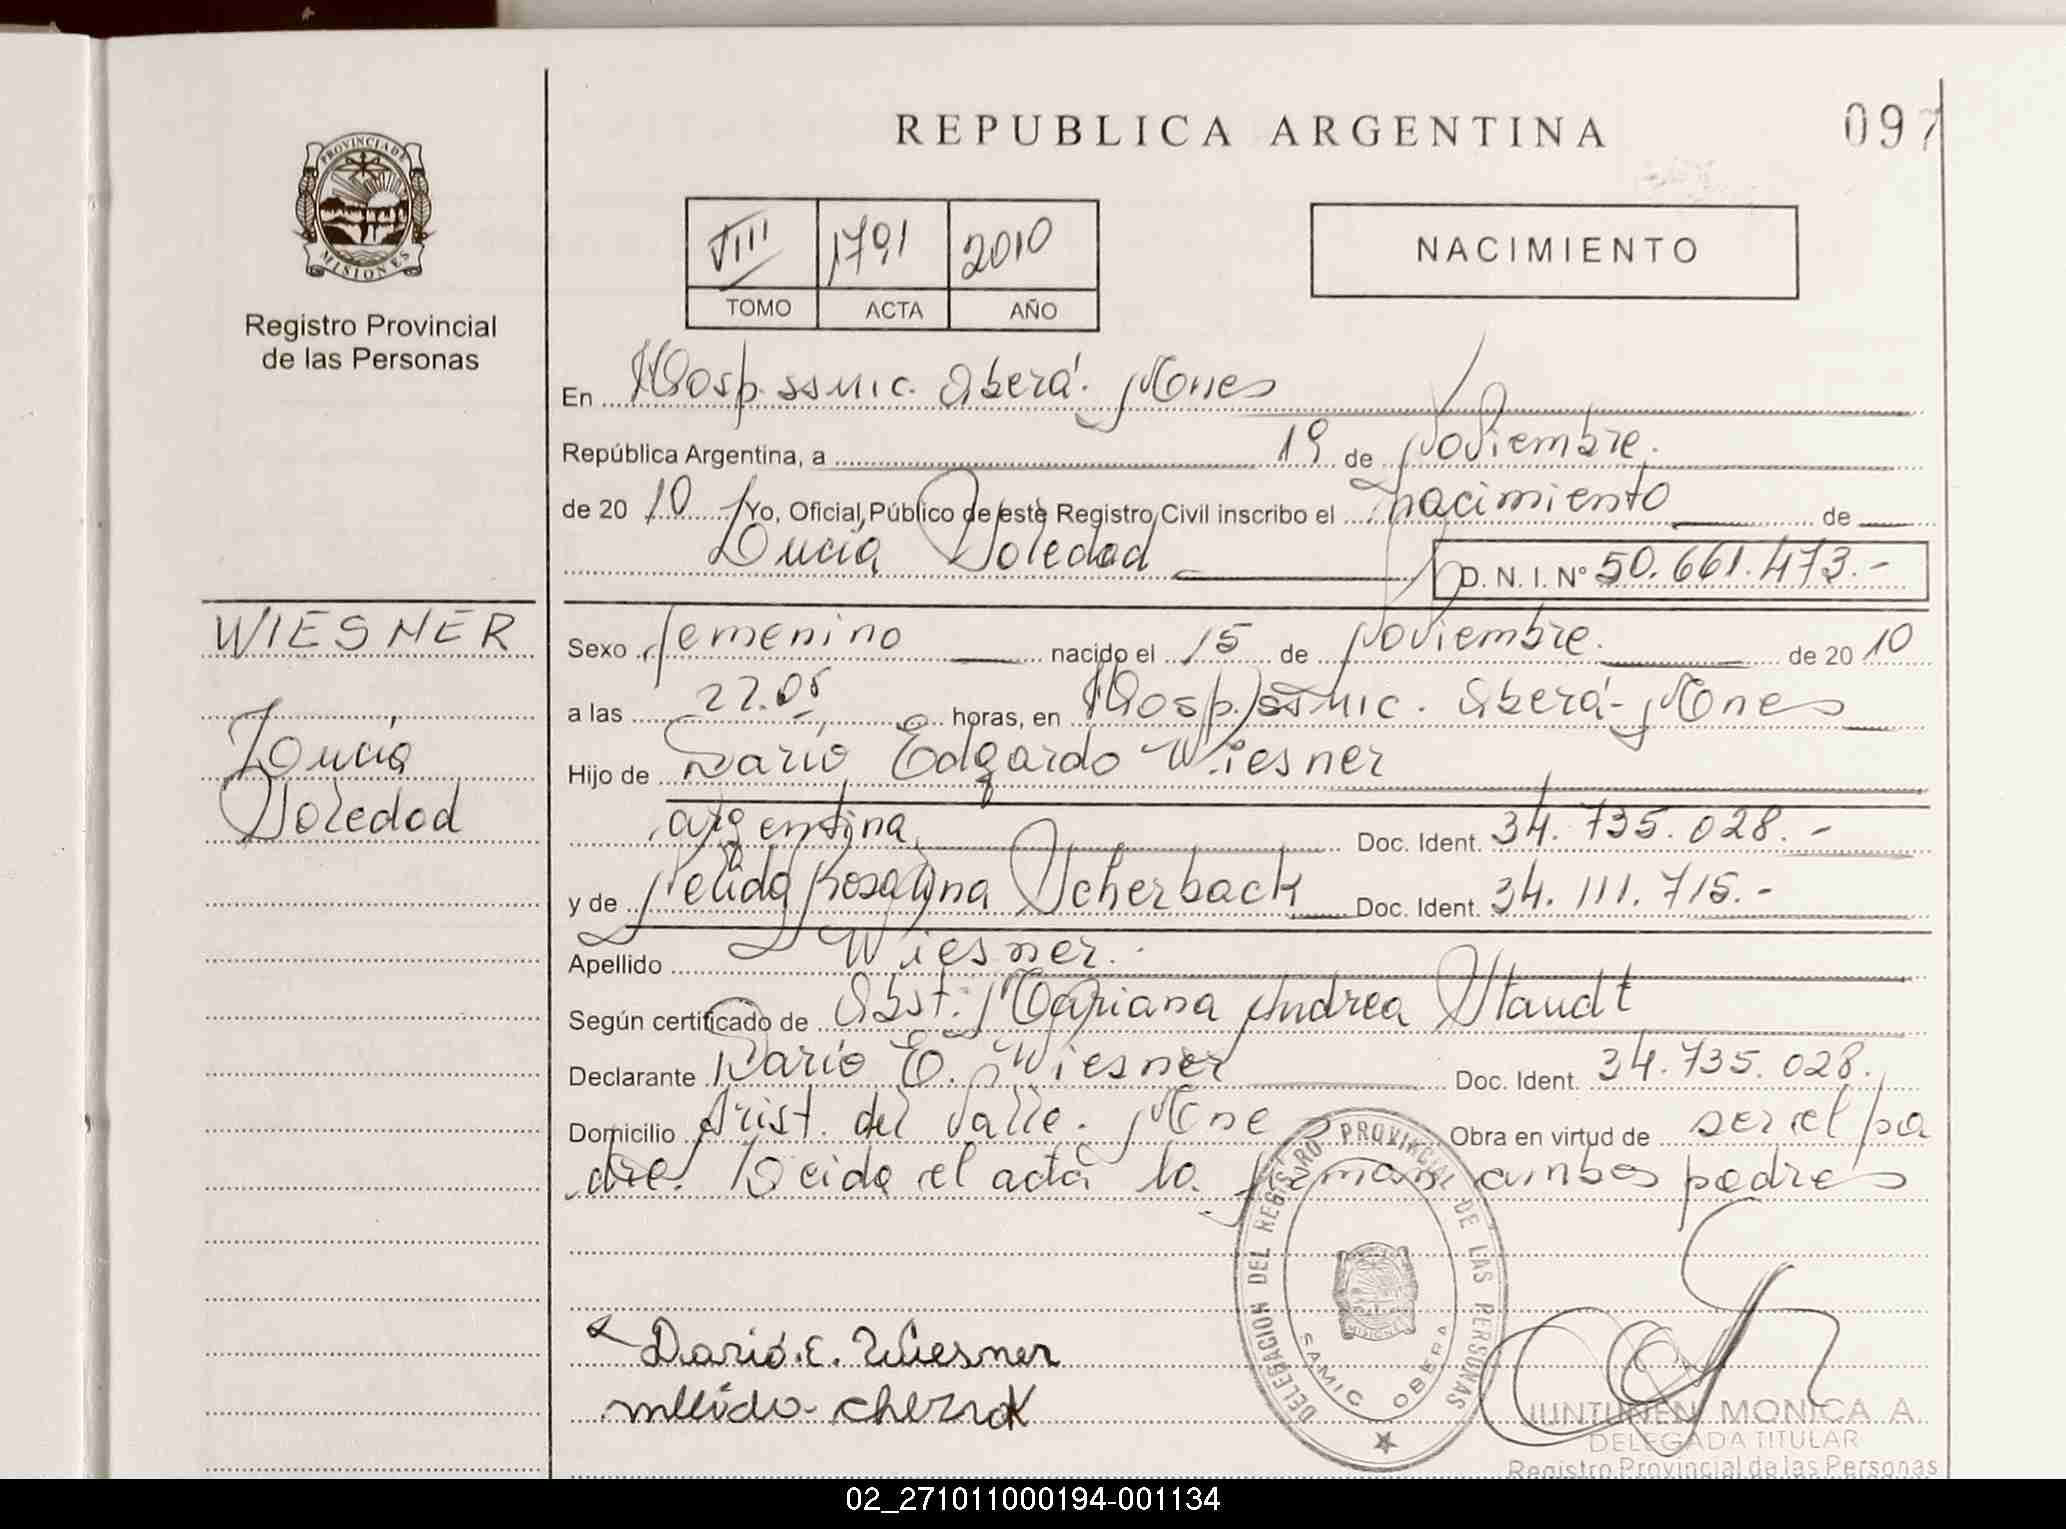 REPUBLICA ARGENTINA
097
PROVINCIA DE
MISIONES
Registro Provincial
de las Personas
VIII 1791 2010
TOMO ACTA AÑO
NACIMIENTO
En Hosp. ssmic. Oberá. Mnes
República Argentina, a 19 de Noviembre.
de 20 10 Yo, Oficial Público de este Registro Civil inscribo el nacimiento de
Lucía Soledad
D. N. I. Nº 50.661.473.-
WIESNER
Lucía
Soledad
Sexo femenino nacido el 15 de Noviembre. de 20 10
a las 22.05 horas, en Hosp. ssmic. Oberá-Mnes
Hijo de Darío Edgardo Wiesner
argentina Doc. Ident. 34.735.028.-
y de Nelida Rosalina Scherback Doc. Ident. 34.111.715.-
Apellido Wiesner.
Según certificado de Obst. Mariana Andrea Staudt
Declarante Darío E. Wiesner Doc. Ident. 34.735.028.
Domicilio Arist. del Valle. Mne Obra en virtud de ser el pa
dre. Leida el acta la firman ambos padres
Dario.E. Wiesner
DELEGACION DEL REGISTRO PROVINCIAL DE LAS PERSONAS
SAMIC OBERA
MISIONES
JUNTUNEN MONICA A.
DELEGADA TITULAR
Registro Provincial de las Personas
02_271011000194-001134